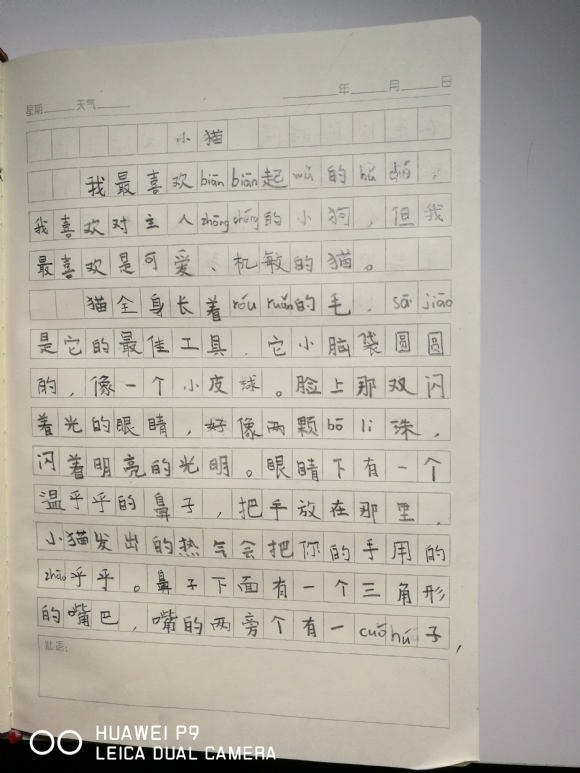 星期 天气 年 月 日
小猫
我最喜欢biān biān起wǔ的hú dié,
我喜欢对主人zhōng chéng的小狗,但我
最喜欢是可爱、机敏的猫。
猫全身长着róu ruǎn的毛,sā jiāo
是它的最佳工具,它小脑袋圆圆
的,像一个小皮球。脸上那双闪
着光的眼睛,好像两颗bō li珠,
闪着明亮的光明。眼睛下有一个
温乎乎的鼻子,把手放在那里,
小猫发出的热气会把你的手用的
zhāo乎乎。鼻子下面有一个三角形
的嘴巴,嘴的两旁个有一cuō hú子,
批语:
HUAWEI P9
LEICA DUAL CAMERA